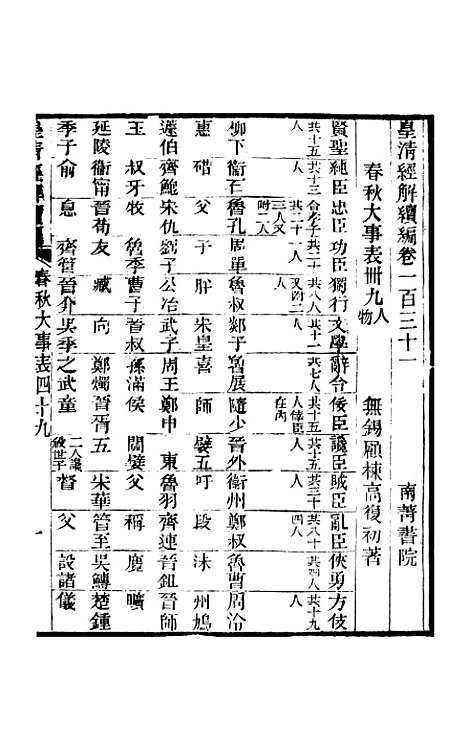 皇清經解續編卷二百三十一 南菁書院
春秋大事表卌九人物 無錫顧棟高復初著
賢聖 純臣 忠臣 功臣 獨行 文學 辭令 佞臣 讒臣 賊臣 亂臣 俠勇 方伎
共十五人 共十三人 合孝子 三人又附二人 共二十一人 共八人又附二人 共十一人 共十七人 共十五人倖臣在內 共十五人 共三十人 共八十四人 人 共十九人
柳下 衞石 魯孔 周單 魯叔 鄭于 魯展 隨少 晉外 衞州 鄭叔 魯曹 周泠
惠 碏 父 子 肸 宋皇 喜 師 嬖五 吁 段 沬 州鳩
蘧伯 齊鮑 宋仇 劉子 公冶 武子 周王 鄭申 東 魯羽 齊連 晉鉏 晉師
玉 叔牙 牧 魯季 曹子 晉叔 孫滿 侯 關嬖 父 稱 麑 曠
延陵 衞甯 晉荀 友 臧 向 鄭燭 晉胥 五 宋華 管至 吳鱄 楚鍾
季子 俞 息 齊管 晉介 吳季 之武 童 二人讒殺世子 督 父 設諸 儀
皇清經解續編 春秋大事表四十九 一